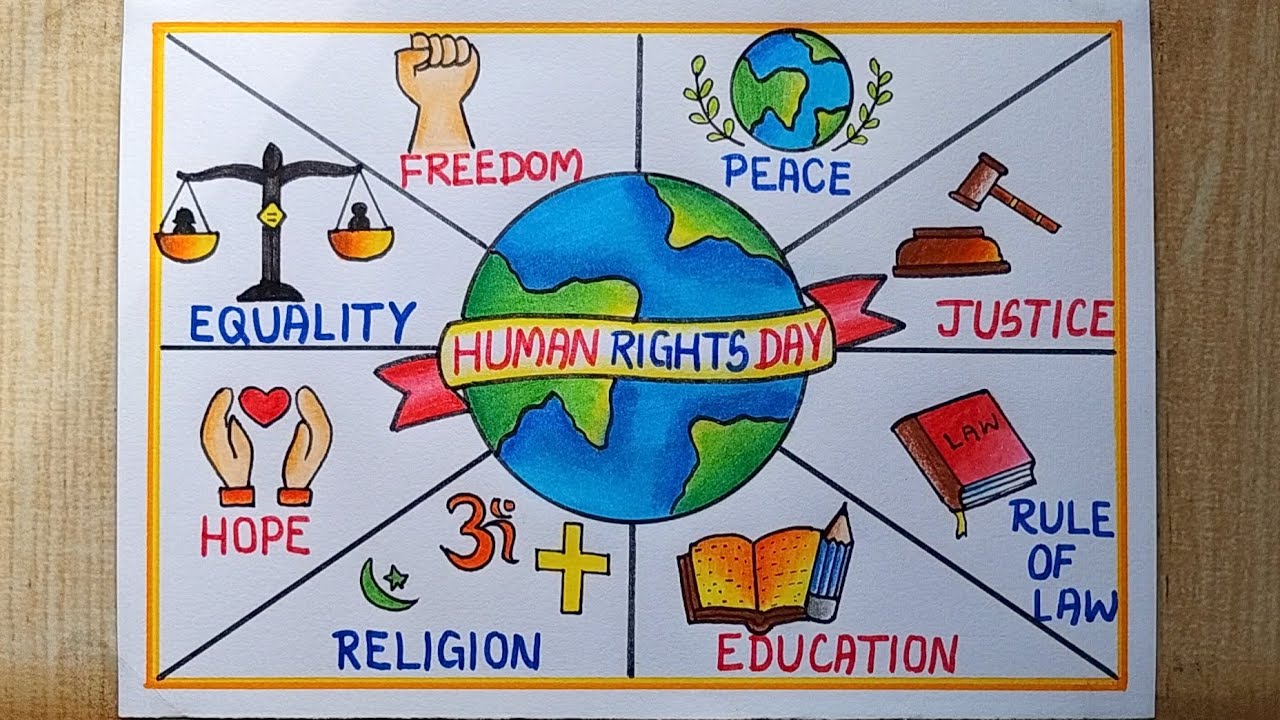 FREEDOM
PEACE
EQUALITY
JUSTICE
HUMAN RIGHTS DAY
HOPE
LAW
RULE
OF
LAW
RELIGION
ॐ
EDUCATION